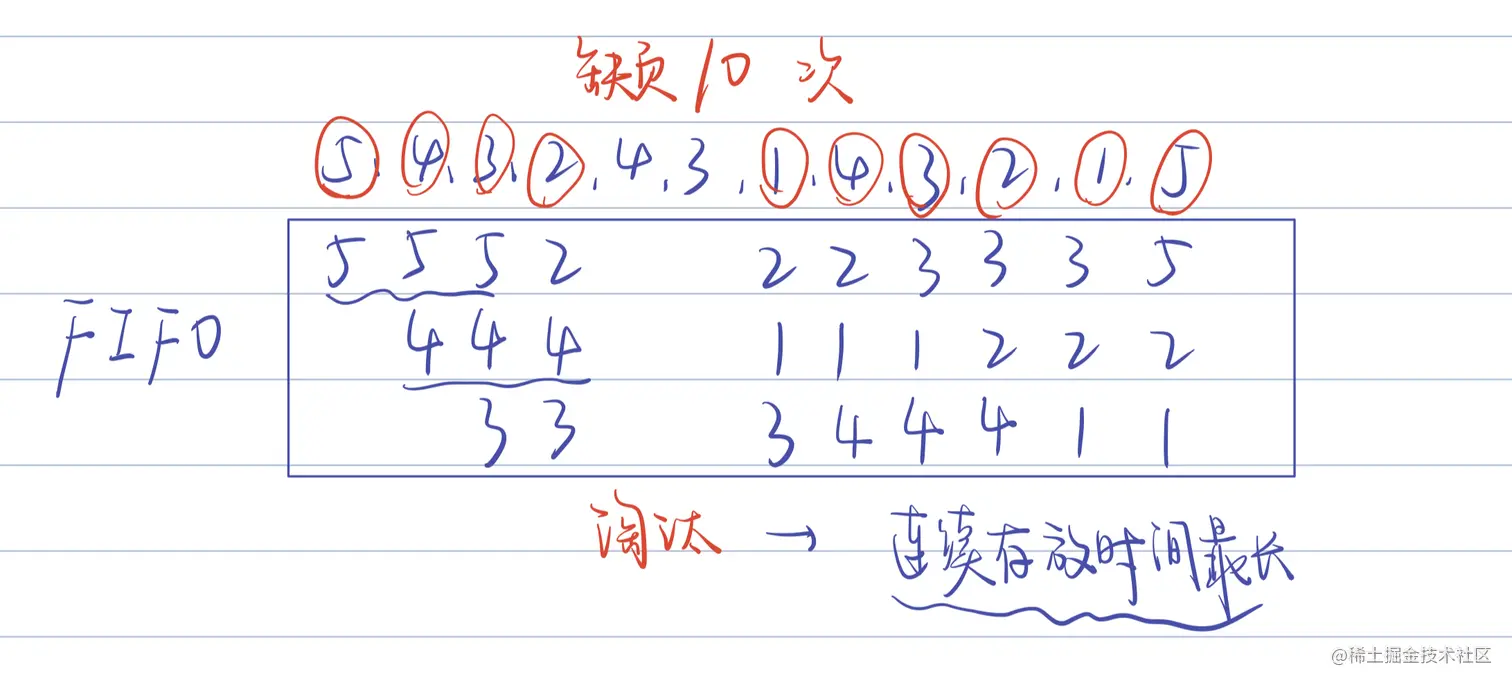 缺页10次
5,4,3,2,4,3,1,4,3,2,1,5
5 5 5 2 2 2 3 3 3 5
FIFO 4 4 4 1 1 1 2 2 2
3 3 3 4 4 4 1 1
淘汰 → 连续存放时间最长
@稀土掘金技术社区